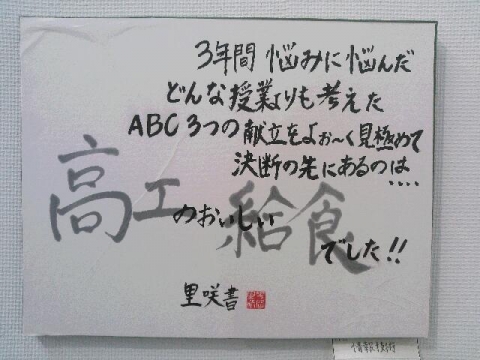 3年間 悩みに悩んだ
どんな授業よりも考えた
ABC 3つの献立をよぉ〜く見極めて
決断の先にあるのは....
高工のおいしい給食でした!!
里咲書
情報技術